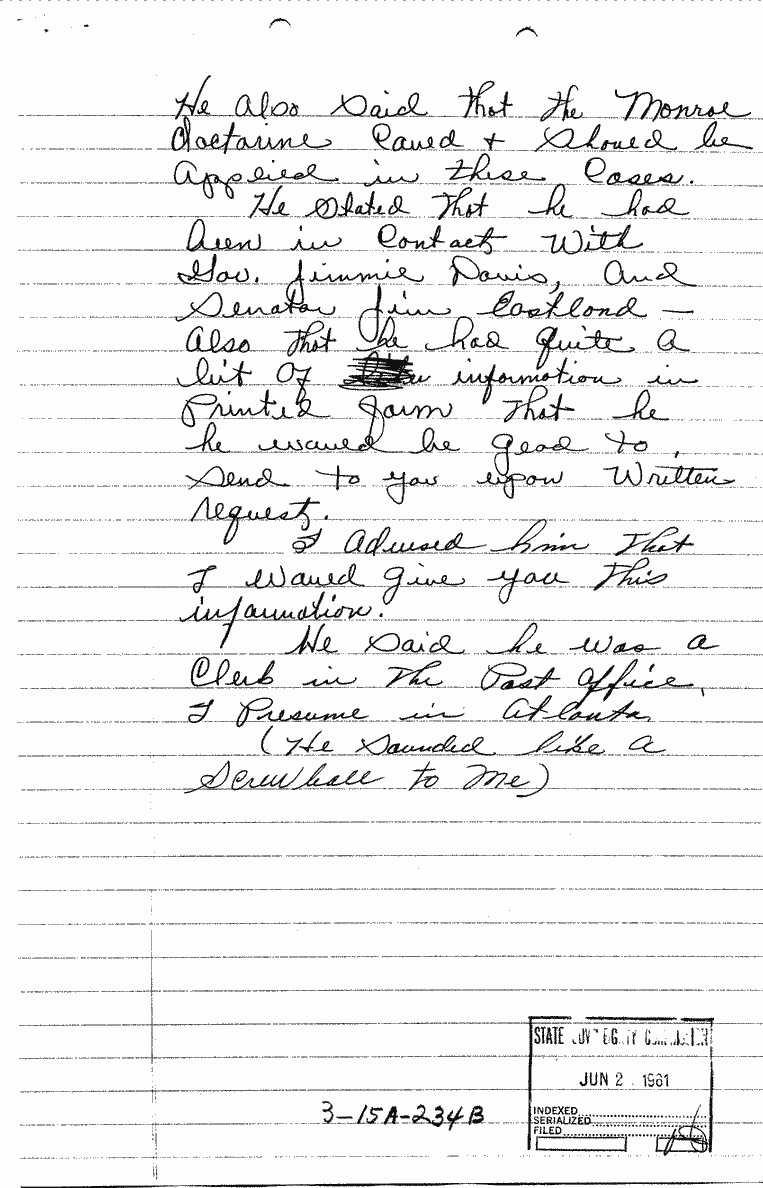 He also said that the Monroe
Doctarine Caued + Shoued be
Applied in these Cases.
He stated that he had
been in Contact With
Gov. Jimmie Davis, and
Senator Jim Eastlond —
Also that he had quite a
bit of information in
Printed form that he
he woued be glad to
send to you upon Written
request.
I Advised him that
I woued give you this
information.
He said he was a
Clerk in the Post Office,
I Presume in Atlanta
(He sounded like a
Screwball to me)
STATE COMMISSION
JUN 2 1961
3-15A-234B
INDEXED
SERIALIZED
FILED